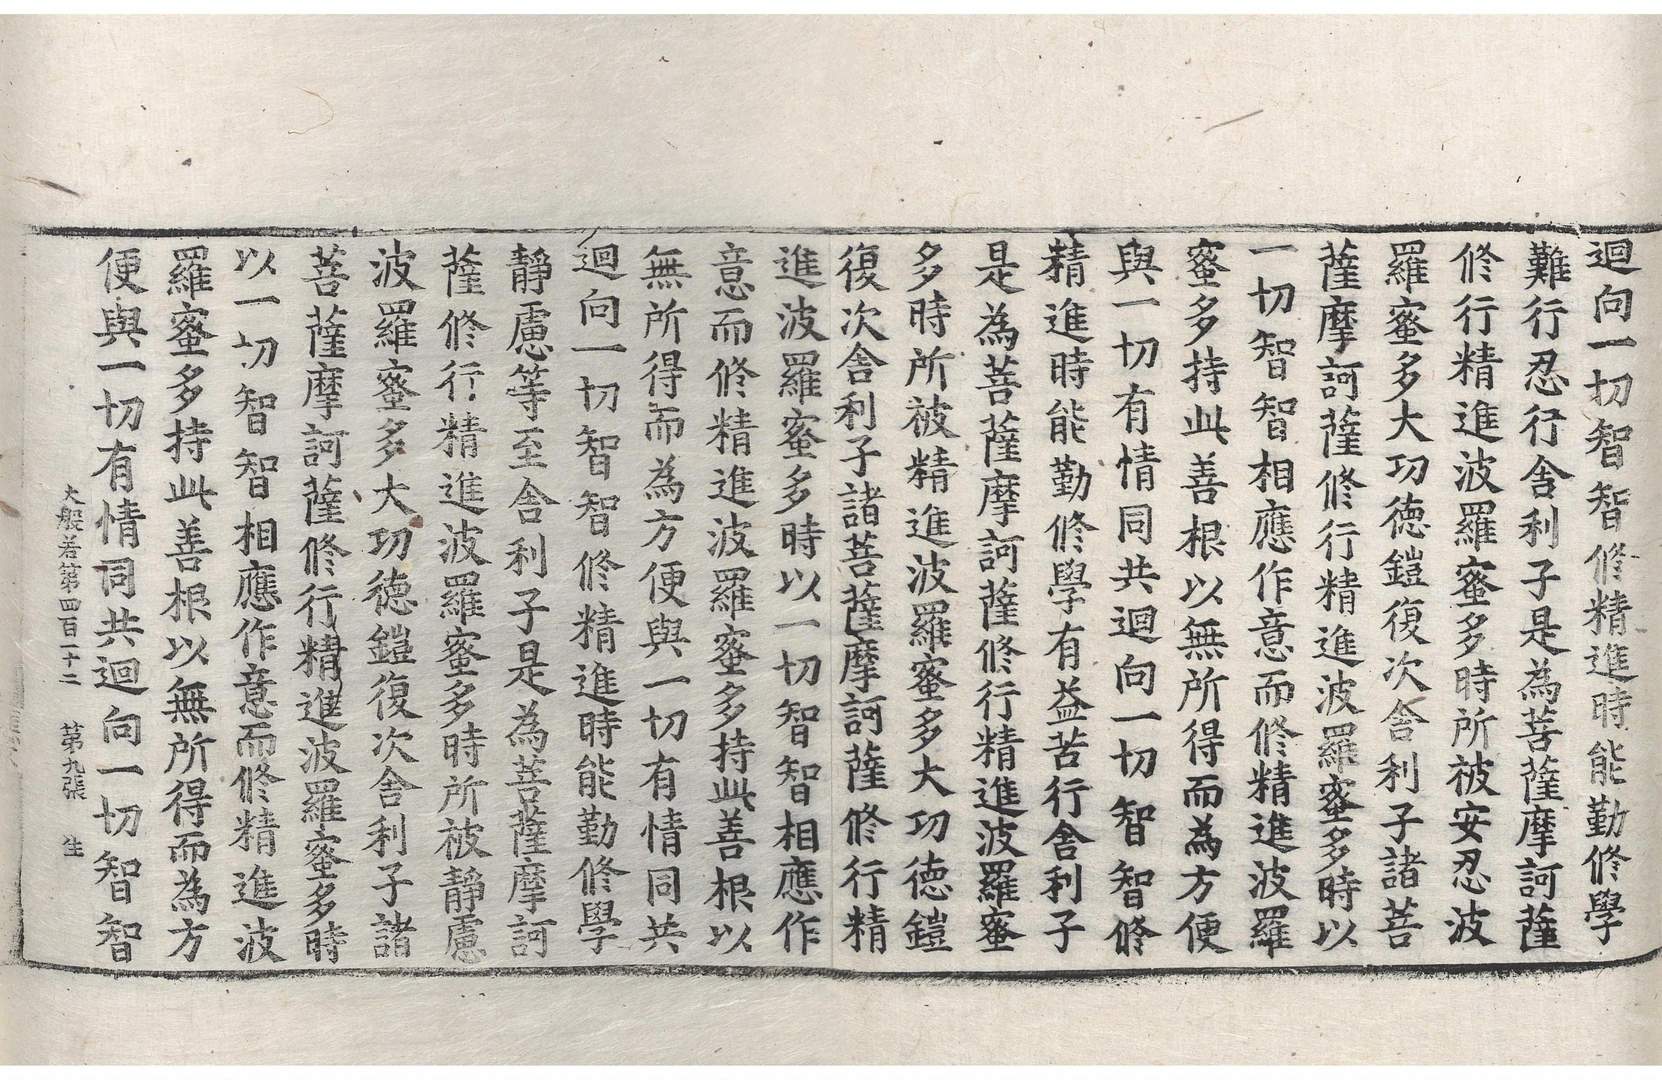 迴向一切智智修精進時能勤修學
難行忍行舍利子是為菩薩摩訶薩
修行精進波羅蜜多時所被安忍波
羅蜜多大功德鎧復次舍利子諸菩
薩摩訶薩修行精進波羅蜜多時以
一切智智相應作意而修精進波羅
蜜多持此善根以無所得而為方便
與一切有情同共迴向一切智智修
精進時能勤修學有益苦行舍利子
是為菩薩摩訶薩修行精進波羅蜜
多時所被精進波羅蜜多大功德鎧
復次舍利子諸菩薩摩訶薩修行精
進波羅蜜多時以一切智智相應作
意而修精進波羅蜜多持此善根以
無所得而為方便與一切有情同共
迴向一切智智修精進時能勤修學
靜慮等至舍利子是為菩薩摩訶
薩修行精進波羅蜜多時所被靜慮
波羅蜜多大功德鎧復次舍利子諸
菩薩摩訶薩修行精進波羅蜜多時
以一切智智相應作意而修精進波
羅蜜多持此善根以無所得而為方
便與一切有情同共迴向一切智智
大般若第四百一十二 第九張 生